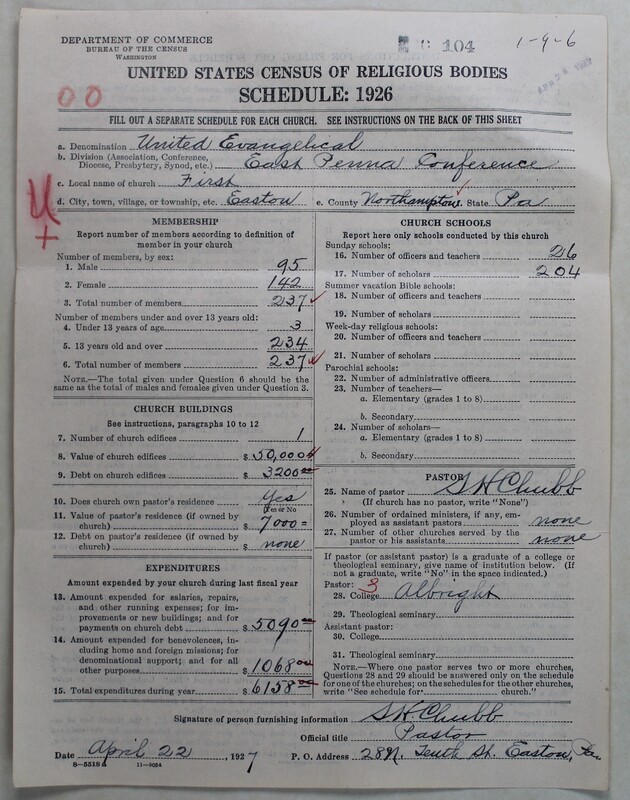 DEPARTMENT OF COMMERCE
BUREAU OF THE CENSUS
WASHINGTON
104
1-9-6
UNITED STATES CENSUS OF RELIGIOUS BODIES
SCHEDULE: 1926
00
FILL OUT A SEPARATE SCHEDULE FOR EACH CHURCH. SEE INSTRUCTIONS ON THE BACK OF THIS SHEET
a. Denomination United Evangelical
b. Division (Association, Conference,
Diocese, Presbytery, Synod, etc.) East Penna Conference
c. Local name of church First
d. City, town, village, or township, etc. Easton e. County Northampton State Pa
MEMBERSHIP
Report number of members according to definition of
member in your church
Number of members, by sex:
1. Male 95
2. Female 142
3. Total number of members 237
Number of members under and over 13 years old:
4. Under 13 years of age 3
5. 13 years old and over 234
6. Total number of members 237
NOTE.—The total given under Question 6 should be the
same as the total of males and females given under Question 3.
CHURCH BUILDINGS
See instructions, paragraphs 10 to 12
7. Number of church edifices 1
8. Value of church edifices $ 50,000
9. Debt on church edifices $ 3200
10. Does church own pastor's residence Yes
Yes or No
11. Value of pastor's residence (if owned by
church) $ 7000
12. Debt on pastor's residence (if owned by
church) $ none
EXPENDITURES
Amount expended by your church during last fiscal year
13. Amount expended for salaries, repairs,
and other running expenses; for im-
provements or new buildings; and for
payments on church debt $ 5090 00
14. Amount expended for benevolences, in-
cluding home and foreign missions; for
denominational support; and for all
other purposes $ 1068 00
15. Total expenditures during year $ 6158 00
CHURCH SCHOOLS
Report here only schools conducted by this church
Sunday schools:
16. Number of officers and teachers 26
17. Number of scholars 204
Summer vacation Bible schools:
18. Number of officers and teachers
19. Number of scholars
Week-day religious schools:
20. Number of officers and teachers
21. Number of scholars
Parochial schools:
22. Number of administrative officers
23. Number of teachers—
a. Elementary (grades 1 to 8)
b. Secondary
24. Number of scholars—
a. Elementary (grades 1 to 8)
b. Secondary
PASTOR
25. Name of pastor S H Chubb
(If church has no pastor, write "None")
26. Number of ordained ministers, if any, em-
ployed as assistant pastors none
27. Number of other churches served by the
pastor or his assistants none
If pastor (or assistant pastor) is a graduate of a college or
theological seminary, give name of institution below. (If
not a graduate, write "No" in the space indicated.)
Pastor: 3
28. College Albright
29. Theological seminary
Assistant pastor:
30. College
31. Theological seminary
NOTE.—Where one pastor serves two or more churches,
Questions 28 and 29 should be answered only on the schedule
for one of the churches; on the schedules for the other churches,
write "See schedule for church."
Signature of person furnishing information S.H. Chubb
Official title Pastor
Date April 22, 1927 P. O. Address 28 N. Tenth St. Easton, Pa
8-5518a 11-9054